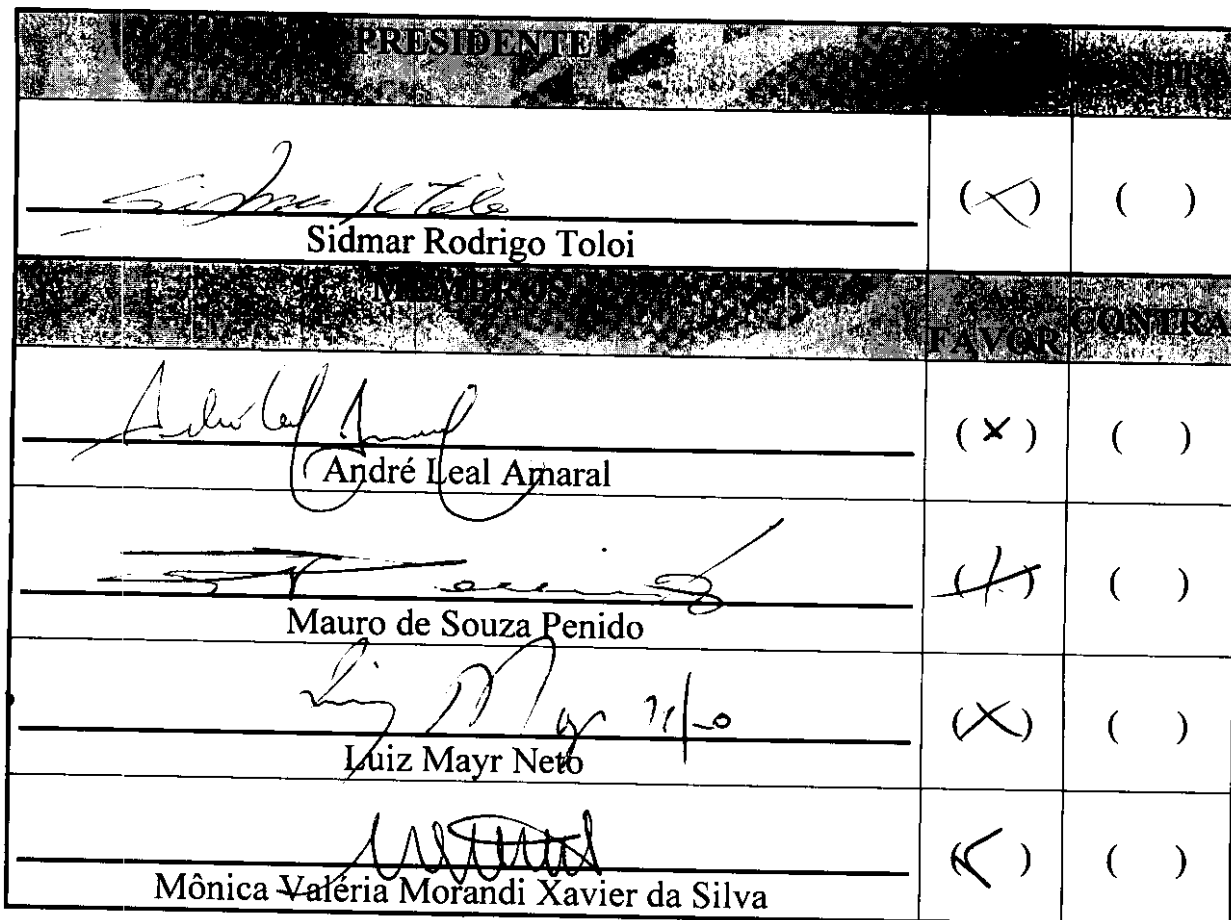 PRESIDENTE
(X) ( )
Sidmar Rodrigo Toloi
MEMBROS A FAVOR CONTRA
(X) ( )
André Leal Amaral
(X) ( )
Mauro de Souza Penido
Luiz Mayr Neto
(X) ( )
Luiz Mayr Neto
(X) ( )
Mônica Valéria Morandi Xavier da Silva